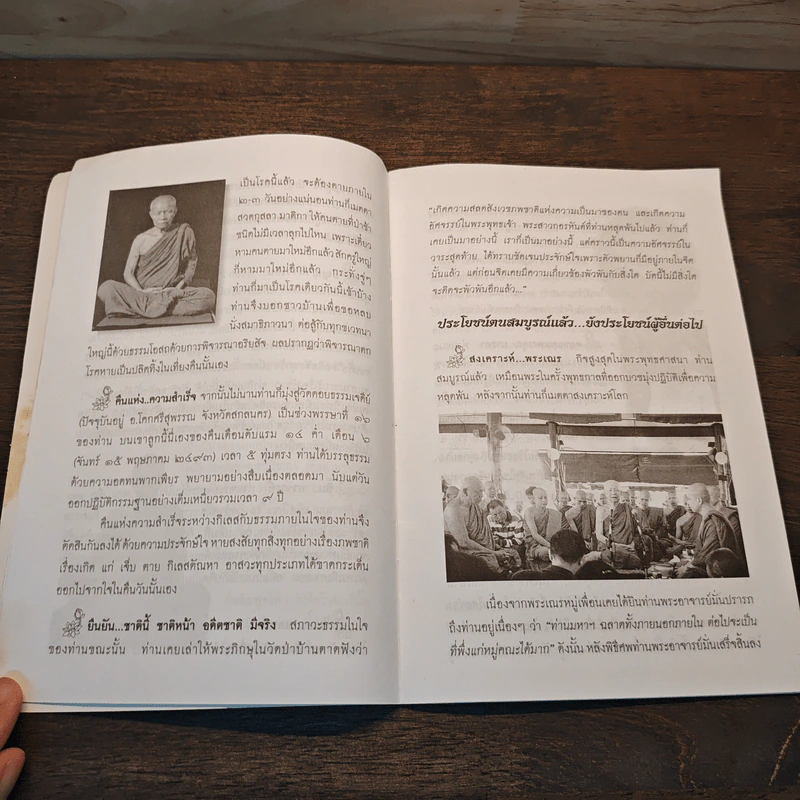 เป็นโรคนี้แล้ว จะต้องตายภายใน
๒-๓ วันอย่างแน่นอนท่านก็เมตตา
สวดกุสลา มาติกา ให้คนตายที่ป่าช้า
ชนิดไม่มีเวลาลุกไปไหน เพราะเดี๋ยว
หามคนตายมาใหม่อีกแล้ว สักครู่ใหญ่
ก็หามมาใหม่อีกแล้ว กระทั่งจู่ๆ
ท่านก็มาเป็นโรคเดียวกันนี้เข้าบ้าง
ท่านจึงบอกชาวบ้านเพื่อขอหลบ
นั่งสมาธิภาวนา ต่อสู้กับทุกขเวทนา
ใหญ่นี้ด้วยธรรมโอสถด้วยการพิจารณาอริยสัจ ผลปรากฏว่าพิจารณาตก
โรคหายเป็นปลิดทิ้งในเที่ยงคืนนั้นเอง
คืนแห่ง..ความสำเร็จ จากนั้นไม่นานท่านก็มุ่งสู่วัดดอยธรรมเจดีย์
(ปัจจุบันอยู่ อ.โคกศรีสุพรรณ จังหวัดสกลนคร) เป็นช่วงพรรษาที่ ๑๖
ของท่าน บนเขาลูกนี้นี่เองของคืนเดือนดับแรม ๑๔ ค่ำ เดือน ๖
(จันทร์ ๑๕ พฤษภาคม ๒๔๙๓) เวลา ๕ ทุ่มตรง ท่านได้บรรลุธรรม
ด้วยความอดทนพากเพียร พยายามอย่างสืบเนื่องตลอดมา นับแต่วัน
ออกปฏิบัติกรรมฐานอย่างเต็มเหนี่ยวรวมเวลา ๙ ปี
คืนแห่งความสำเร็จระหว่างกิเลสกับธรรมภายในใจของท่านจึง
ตัดสินกันลงได้ ด้วยความประจักษ์ใจ หายสงสัยทุกสิ่งทุกอย่างเรื่องภพชาติ
เรื่องเกิด แก่ เจ็บ ตาย กิเลสตัณหา อาสวะทุกประเภทได้ขาดกระเด็น
ออกไปจากใจในคืนวันนั้นเอง
ยืนยัน...ชาตินี้ ชาติหน้า อดีตชาติ มีจริง สภาวะธรรมในใจ
ของท่านขณะนั้น ท่านเคยเล่าให้พระภิกษุในวัดป่าบ้านตาดฟังว่า
“เกิดความสลดสังเวชภพชาติแห่งความเป็นมาของตน และเกิดความ
อัศจรรย์ในพระพุทธเจ้า พระสาวกอรหันต์ที่ท่านหลุดพ้นไปแล้ว ท่านก็
เคยเป็นมาอย่างนี้ เราก็เป็นมาอย่างนี้ แต่คราวนี้เป็นความอัศจรรย์ใน
วาระสุดท้าย ได้ทราบชัดเจนประจักษ์ใจเพราะตัวพยานก็มีอยู่ภายในจิต
นั้นแล้ว แต่ก่อนจิตเคยมีความเกี่ยวข้องพัวพันกับสิ่งใด บัดนี้ไม่มีสิ่งใด
จะติดจะพัวพันอีกแล้ว...”
ประโยชน์ตนสมบูรณ์แล้ว...ยังประโยชน์ผู้อื่นต่อไป
สงเคราะห์...พระเณร กิจสูงสุดในพระพุทธศาสนา ท่าน
สมบูรณ์แล้ว เหมือนพระในครั้งพุทธกาลที่ออกบวชมุ่งปฏิบัติเพื่อความ
หลุดพ้น หลังจากนั้นท่านก็เมตตาสงเคราะห์โลก
เนื่องจากพระเณรหมู่เพื่อนเคยได้ยินท่านพระอาจารย์มั่นปรารภ
ถึงท่านอยู่เนื่องๆ ว่า “ท่านมหาฯ ฉลาดทั้งภายนอกภายใน ต่อไปจะเป็น
ที่พึ่งแก่หมู่คณะได้มาก” ดังนั้น หลังพิธีศพท่านพระอาจารย์มั่นเสร็จสิ้นลง